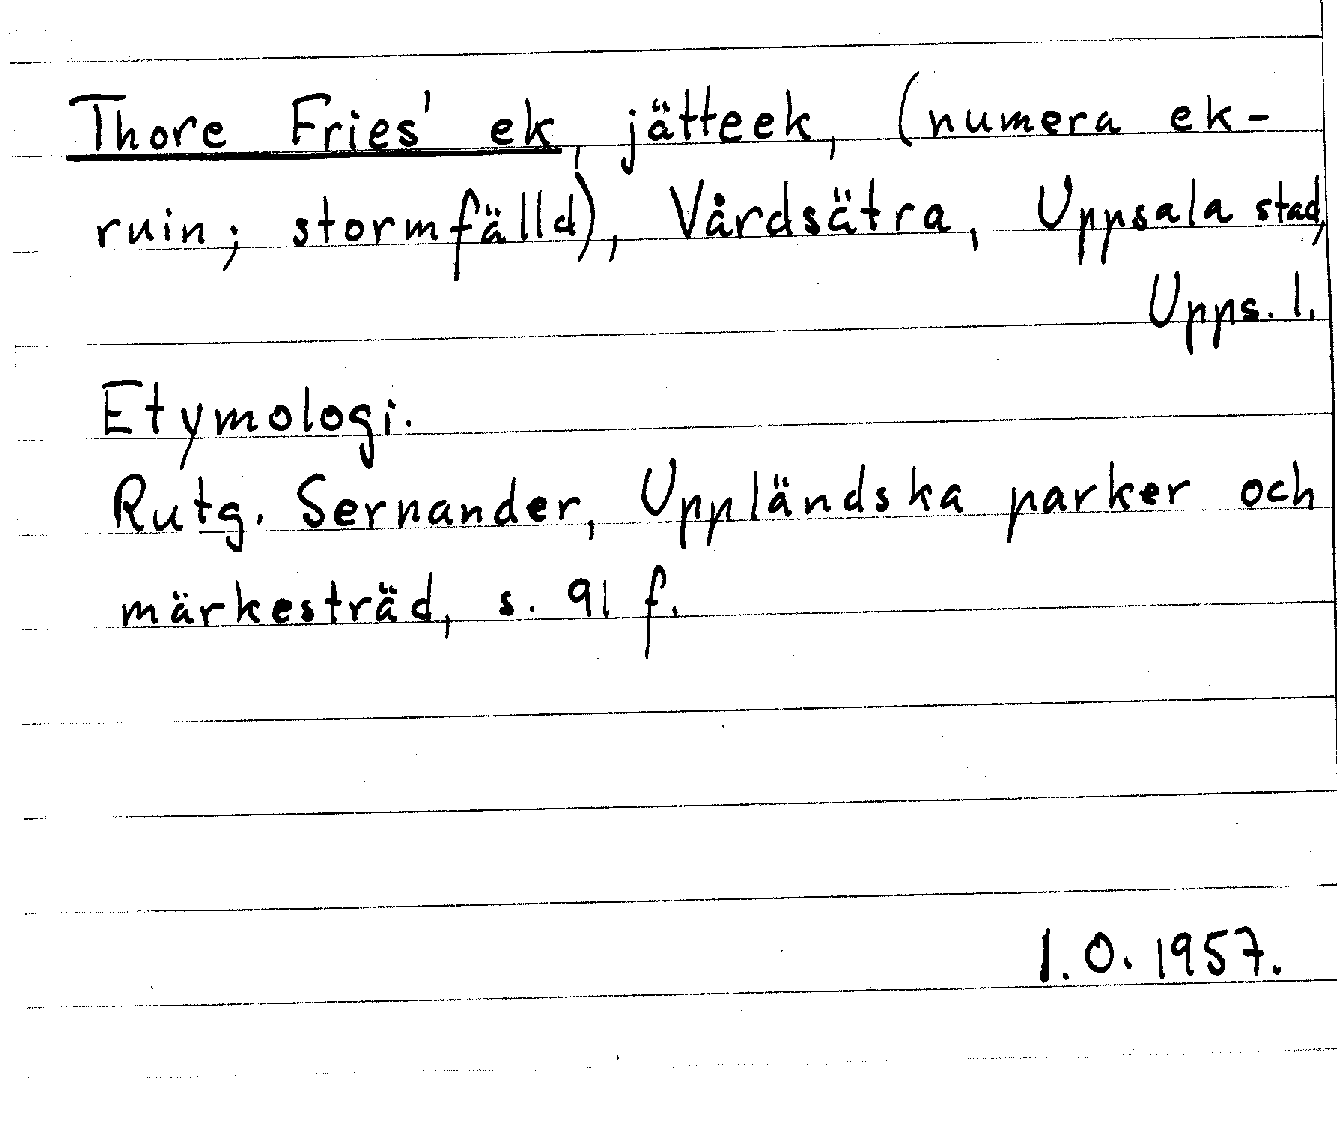 Thore Fries' ek, jätteek, (numera ek-
ruin; stormfälld), Vårdsätra, Uppsala stad,
Upps. l.
Etymologi.
Rutg. Sernander, Uppländska parker och
märkesträd, s. 91 f.
I. O. 1957.